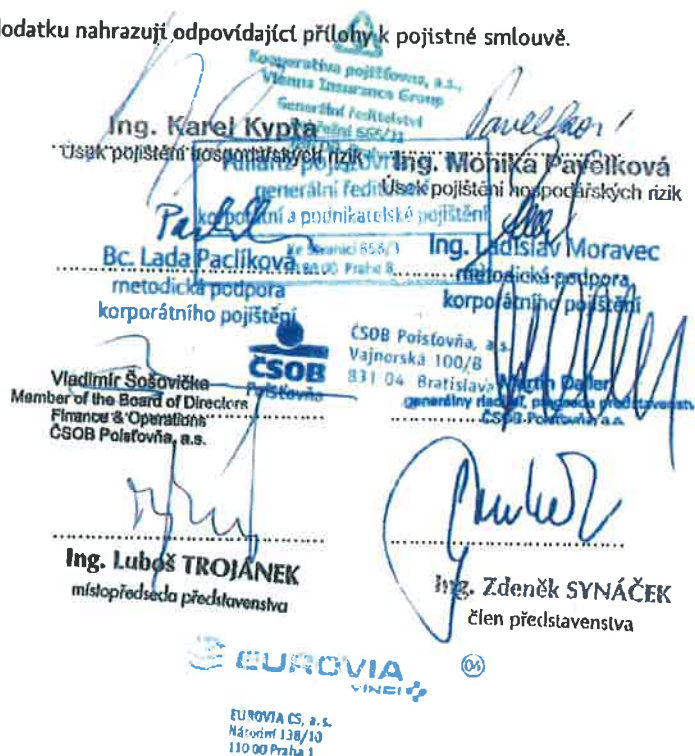 dodatku nahrazují odpovídající přílohy k pojistné smlouvě.
Kooperativa pojišťovna, a.s.,
Vienna Insurance Group
Generální ředitelství
Ing. Karel Kypta
Úsek pojištění hospodářských rizik
Pavelková
Ing. Monika Pavelková
Úsek pojištění hospodářských rizik
pojišťovna
generální ředitel
korporátní a podnikatelské pojištění
656/3
Praha 8
Bc. Lada Paclíková
metodická podpora
korporátního pojištění
Ing. Ladislav Moravec
metodická podpora
korporátního pojištění
ČSOB
Poisťovňa
ČSOB Poisťovňa, a.s.
Vajnorská 100/B
831 04 Bratislava
Vladimír Šošovička
Member of the Board of Directors
Finance & Operations
ČSOB Poisťovňa, a.s.
Martin Daller
generálny riaditeľ, predseda predstavenstva
ČSOB Poisťovňa, a.s.
Ing. Luboš TROJÁNEK
místopředseda představenstva
Ing. Zdeněk SYNÁČEK
člen představenstva
EUROVIA
VINCI
04
EUROVIA CS, a.s.
Národní 138/10
110 00 Praha 1